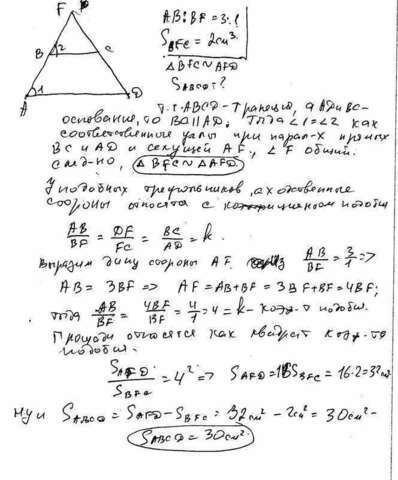 F
B 2 C
A 1 D
AB:BF = 3:1
S BFC = 2см³
△BFC∾AFD
S ABCD?
т.к. ABCD - трапеция, а AD и BC-
основание, то BC||AD; Тогда ∠1=∠2 как
соответственные углы при парал-х прямых
BC и AD и секущей AF., ∠F общий.
след-но, △BFC∾△AFD.
У подобных треугольников, сходственные
стороны относятся с подобия
AB/BF = DF/FC = BC/AD = k.
Выразим длину стороны AF. AB/BF = 3/1 =>
AB = 3BF => AF = AB+BF = 3BF+BF = 4BF;
тогда AB/BF = 4BF/BF = 4/1 = 4 = k - коэф-т подобия.
Площади относятся как квадрат коэф-та
подобия.
S AFD/S BFC = 4² => S AFD = 16 S BFC = 16·2 = 32см.
Ну и S ABCD = S AFD - S BFC = 32см² - 2см² = 30см²
S ABCD = 30см²